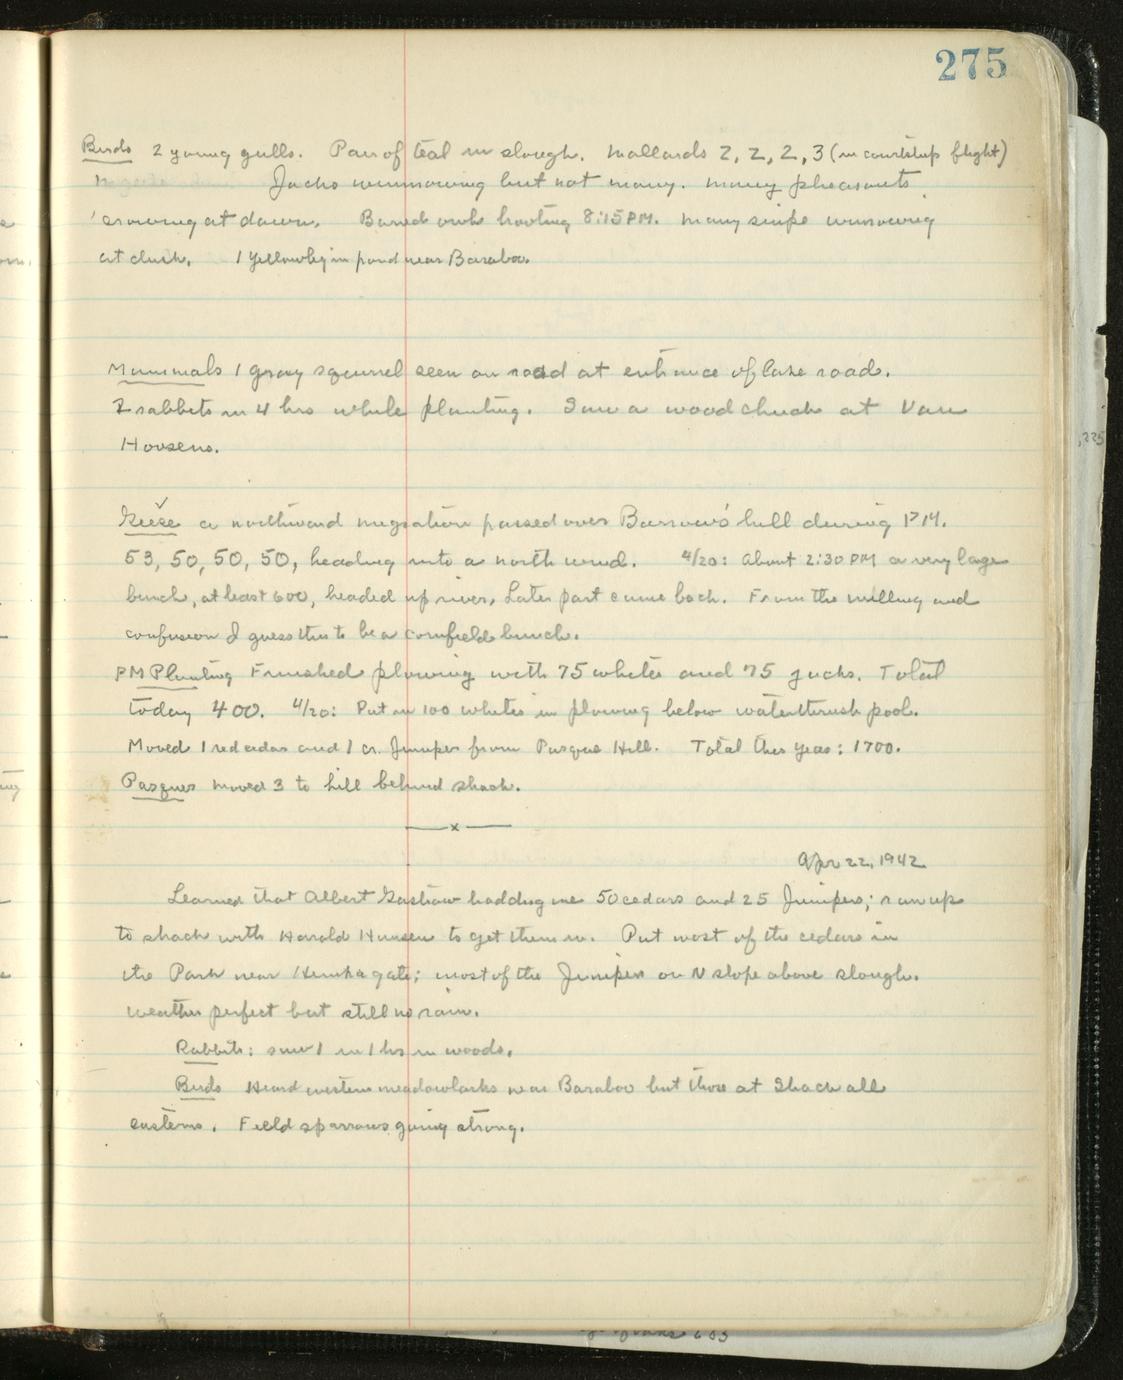 275
Birds 2 young gulls. Pair of teal in slough. Mallards 2, 2, 2, 3 (in courtship flight)
Jacks winnowing but not many. Many pheasants
crowing at dawn. Barred owls hooting 8:15 PM. Many snipe winnowing
at dusk. 1 Yellowleg in pond near Baraboo.
Mammals 1 gray squirrel seen on road at entrance of lake road.
2 rabbits in 4 hrs while planting. Saw a woodchuck at Van
Hoosens.
Geese a northward migration passed over Barrow's hill during PM.
53, 50, 50, 50, heading into a north wind. 4/20: About 2:30 PM a very large
bunch, at least 600, headed up river. Later part came back. From the milling and
confusion I guess this to be a cornfield bunch.
PM Planting Finished plowing with 75 whites and 75 jacks. Total
today 400. 4/20: Put in 100 whites in plowing below waterthrush pool.
Moved 1 red cedar and 1 cr. Juniper from Pasque Hill. Total this year: 1700.
Pasques moved 3 to hill behind shack.
x
Apr 22, 1942
Learned that Albert Gastrow had dug me 50 cedars and 25 Junipers; ran up
to shack with Harold Hansen to get them in. Put most of the cedars in
the Park near gate; most of the Junipers on N slope above slough.
Weather perfect but still no rain.
Rabbits: saw 1 in 1 hr in woods.
Birds Heard western meadowlarks near Baraboo but those at Shack all
eastern. Field sparrows going strong.